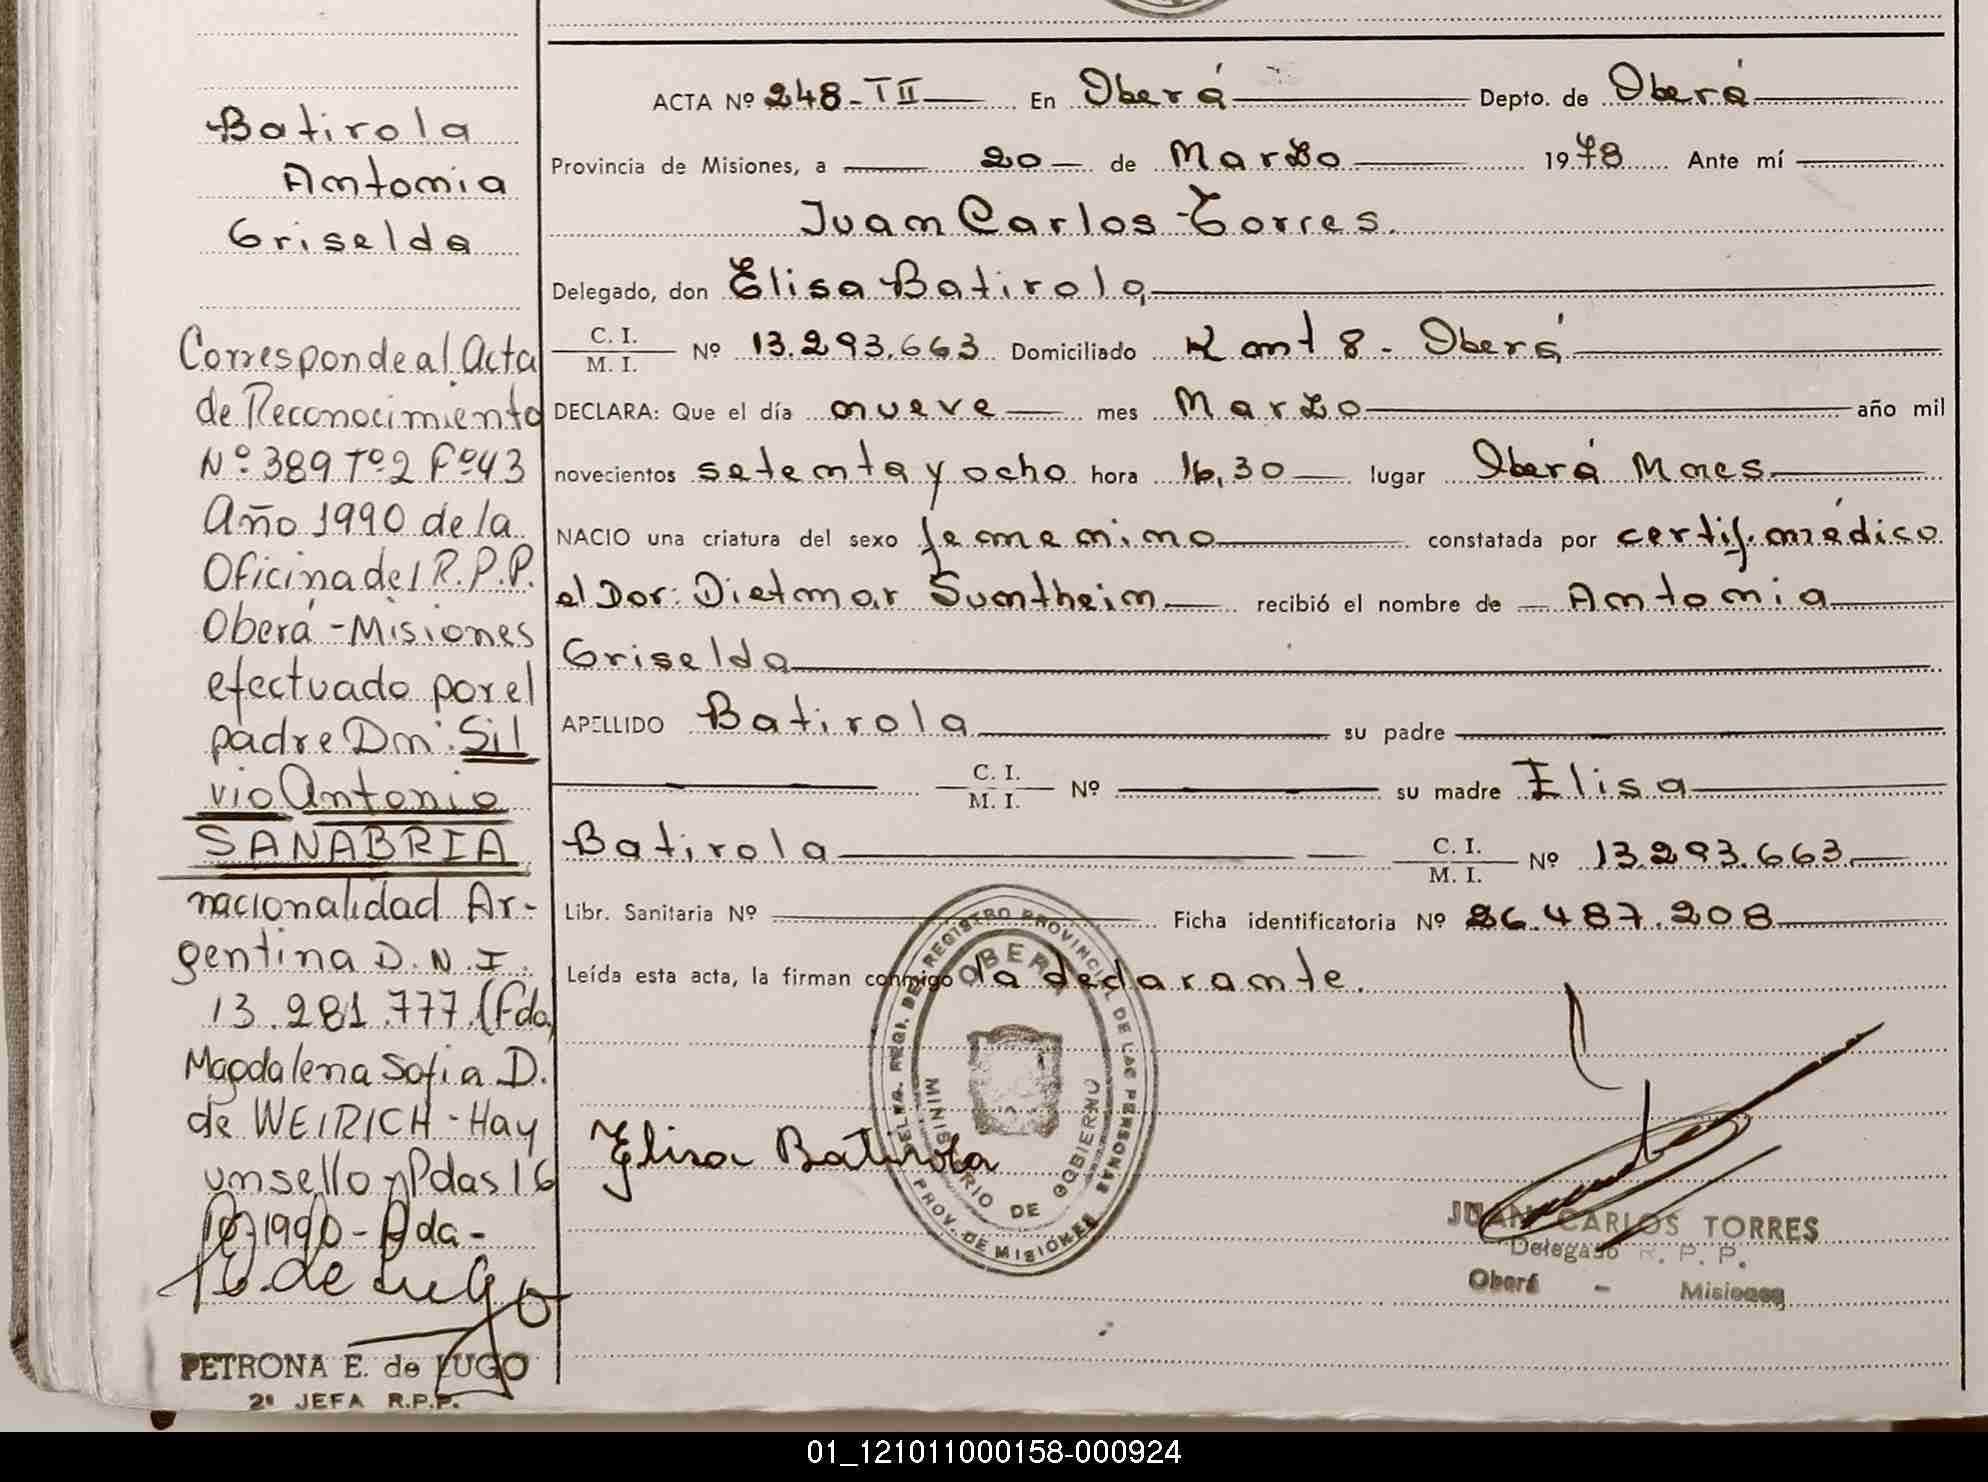 Batirola
Antonia
Griselda
Corresponde al Acta
de Reconocimiento
Nº 389 Tº 2 Fº 43
Año 1990 de la
Oficina del R.P.P.
Oberá - Misiones
efectuado por el
padre Dn. Sil
vio Antonio
SANABRIA
nacionalidad Ar-
gentina D.N.I.
13.281.777. (Fdo.
Magdalena Sofia D.
de WEIRICH - Hay
un sello - Pdas 16
1990 - 
de Lugo
PETRONA E. de LUGO
2º JEFA R.P.P.
ACTA Nº 248 - T II En Oberá Depto. de Oberá
Provincia de Misiones, a 20 de Marzo 1978 Ante mí
Juan Carlos Torres.
Delegado, don Elisa Batirola
C. I. / M. I. Nº 13.293.663 Domiciliado Kmt 8 - Oberá
DECLARA: Que el día nueve mes Marzo año mil
novecientos setenta y ocho hora 16,30 lugar Oberá Mnes
NACIO una criatura del sexo femenino constatada por certif. médico
el Dor: Dietmar Suntheim recibió el nombre de Antonia
Griselda
APELLIDO Batirola su padre
C. I. / M. I. Nº su madre Elisa
Batirola C. I. / M. I. Nº 13.293.663
Libr. Sanitaria Nº Ficha identificatoria Nº 26.487.208
Leída esta acta, la firman conmigo la declarante.
DELEG. REGI. DEL REGISTRO PROVINCIAL DE LAS PERSONAS
OBERA
MINISTERIO DE GOBIERNO
PROV. DE MISIONES
Elisa Batirola
JUAN CARLOS TORRES
Delegado R. P. P.
Oberá - Misiones
01_121011000158-000924